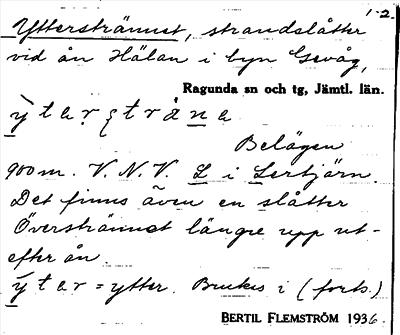 1-2.
Ytterstrännet, strandslåtter
vid ån Hälan i byn Gevåg,
Ragunda sn och tg, Jämtl. län.
Belägen
900 m. V.N.V. L i Lertjärn.
Det finns även en slåtter
Överstrännet längre upp ut-
efter ån.
= ytter. Brukes i (forts.)
BERTIL FLEMSTRÖM 1936.